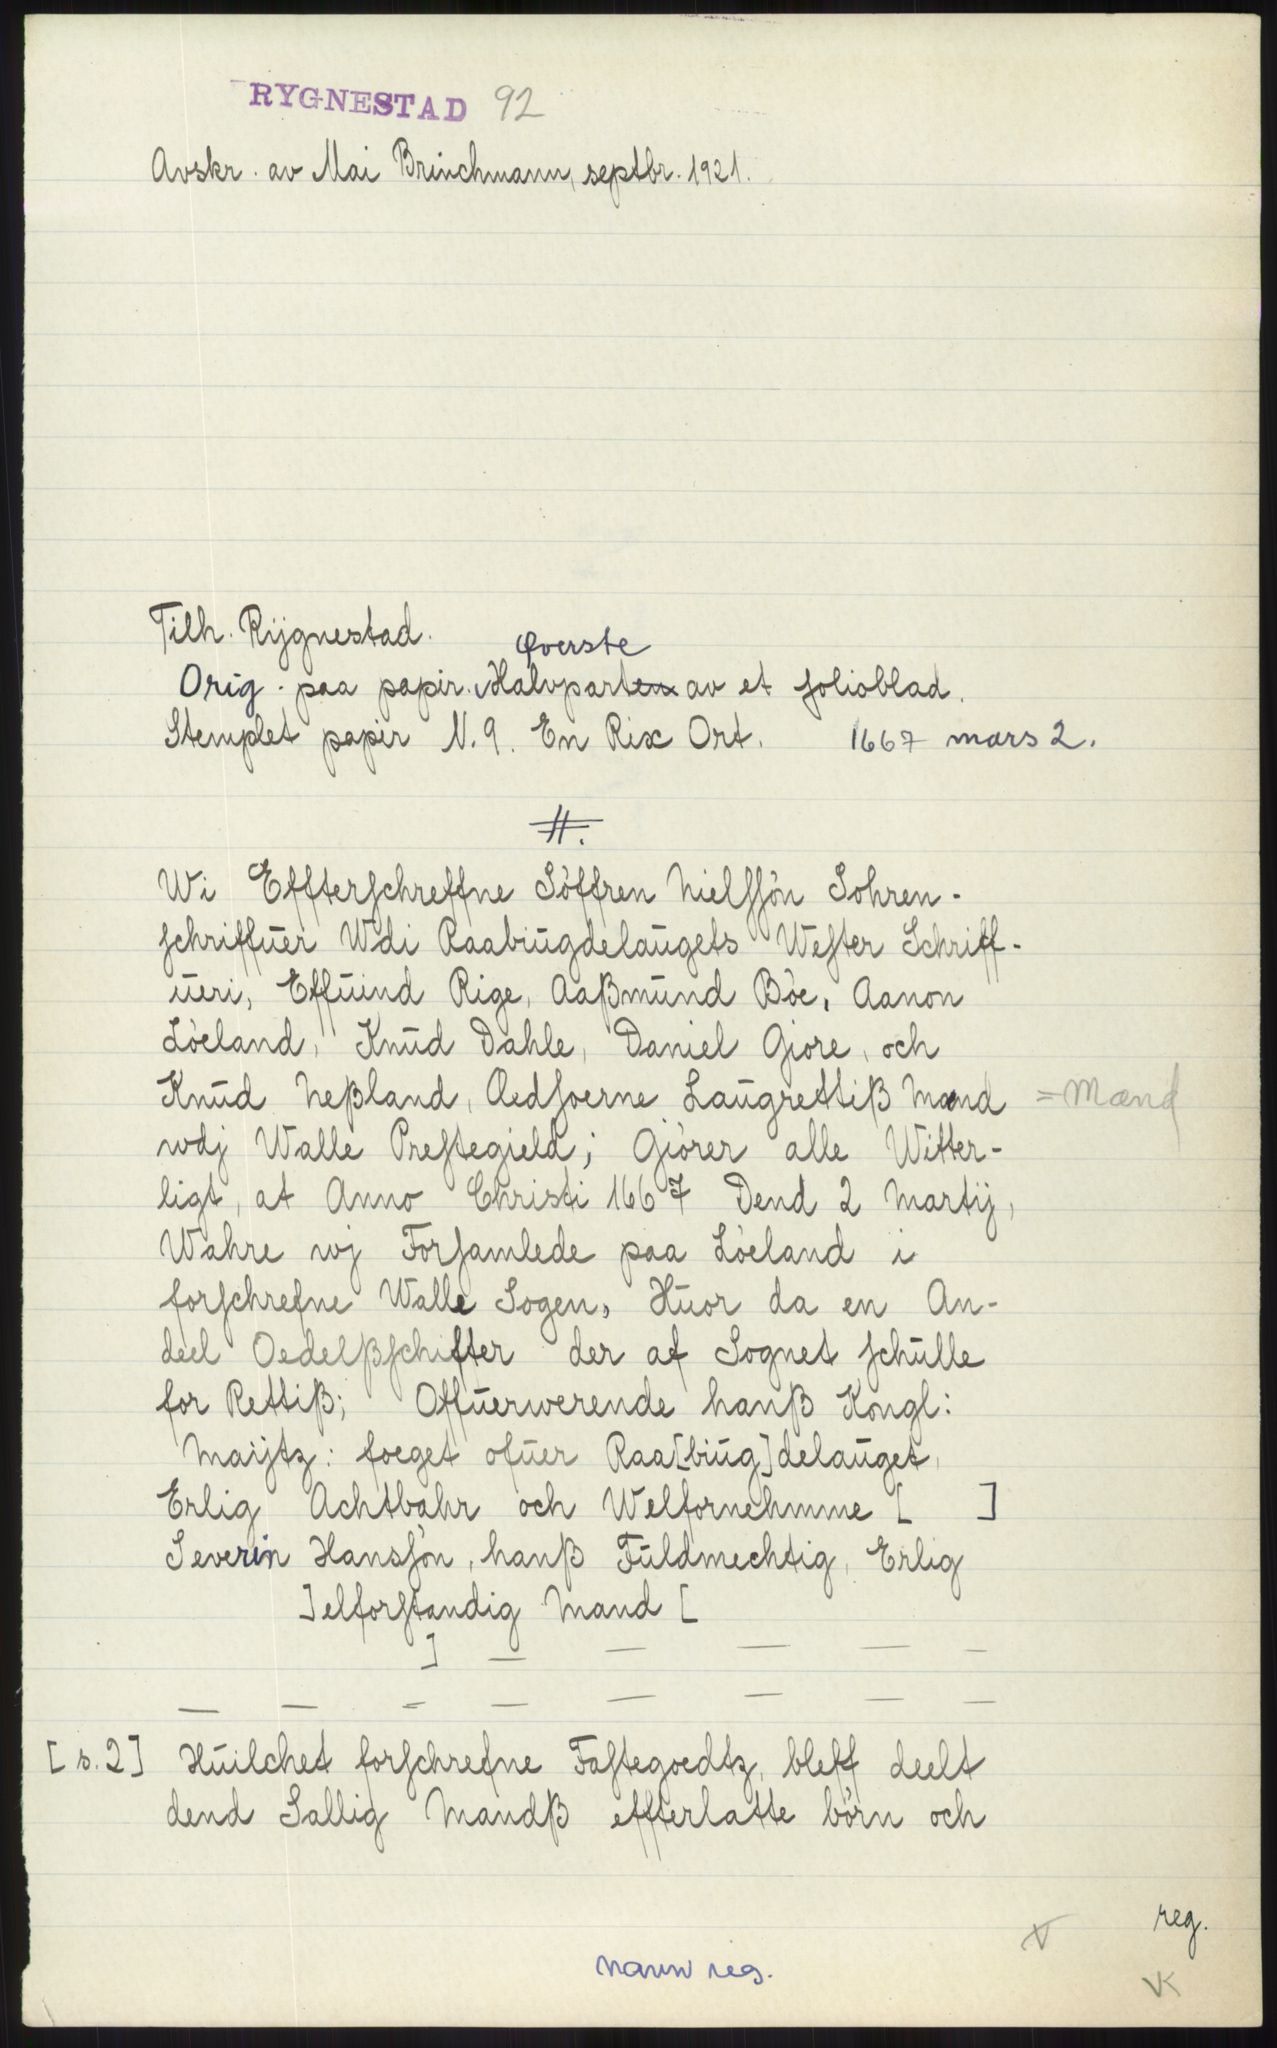 RYGNESTAD 92
Avskr. av Mai Brinchmann, septbr. 1921.
Tilh. Rygnestad.
Øverste
Orig. paa papir. Halvparten av et folioblad.
Stemplet papir N. 9. En Rix Ort. 1667 mars 2.
#.
Wi Effterschreffne Söffren Nielssön Sohren-
schriffuer Wdi Raabiugdelaugets Wester Schriff-
ueri, Effuind Rige, Aaßmund Böe, Aanon
Löeland, Knud Dahle, Daniel Giore, och
Knud Neßland, Oedsoerne Laugrettiß Mænd = Mænd
wdj Walle Prestegield; Giörer alle Witter-
ligt, at Anno Christi 1667 Dend 2 Martij,
Wahre wj Forsamlede paa Löeland i
forschrefne Walle Sogen, Huor da en An-
deel Oedelßschifter der af Sognet schulle
for Rettiß; Offuerwerende hanß Kongl:
Maijtz: foeget ofuer Raa[biug]delauget,
Erlig Achtbahr och Welfornehmme [ ]
Severin Hansön, hanß Fuldmechtig, Erlig
]elforstandig Mand [
] — — — — —
— — — — — — — —
[s. 2] Huilchet forschrefne Fastegoedtz, bleff deelt
dend Sallig Mandß effterlatte börn och
reg.
navn reg.
VK